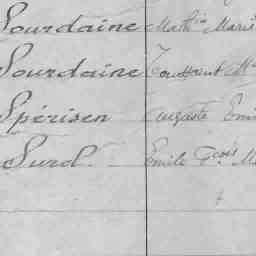 Sourdaine Math^in Marie
Sourdaine Toussaint M
Spérisen Auguste Emi
Surd. Emile Fçois M